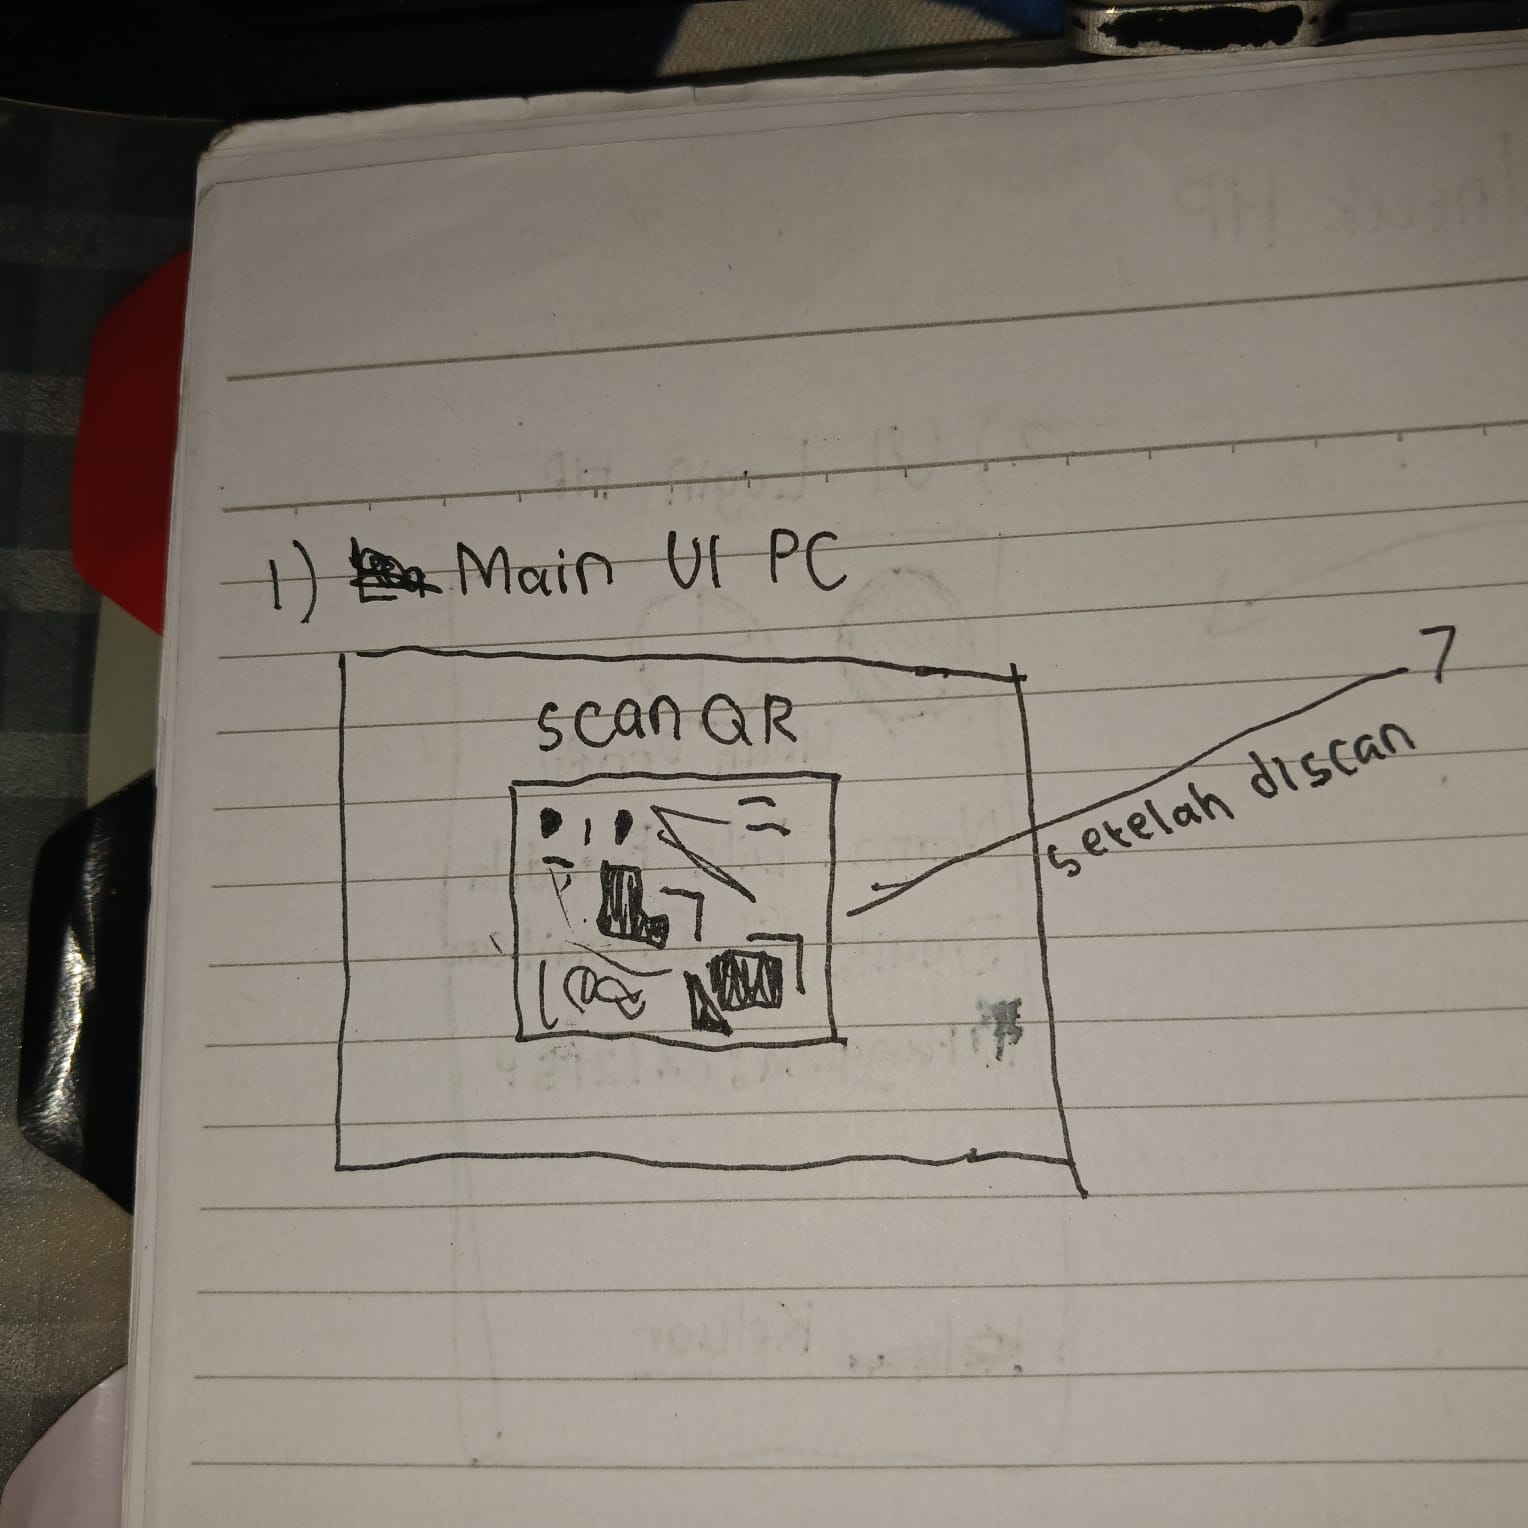 1) Main UI PC
scan QR
setelah discan